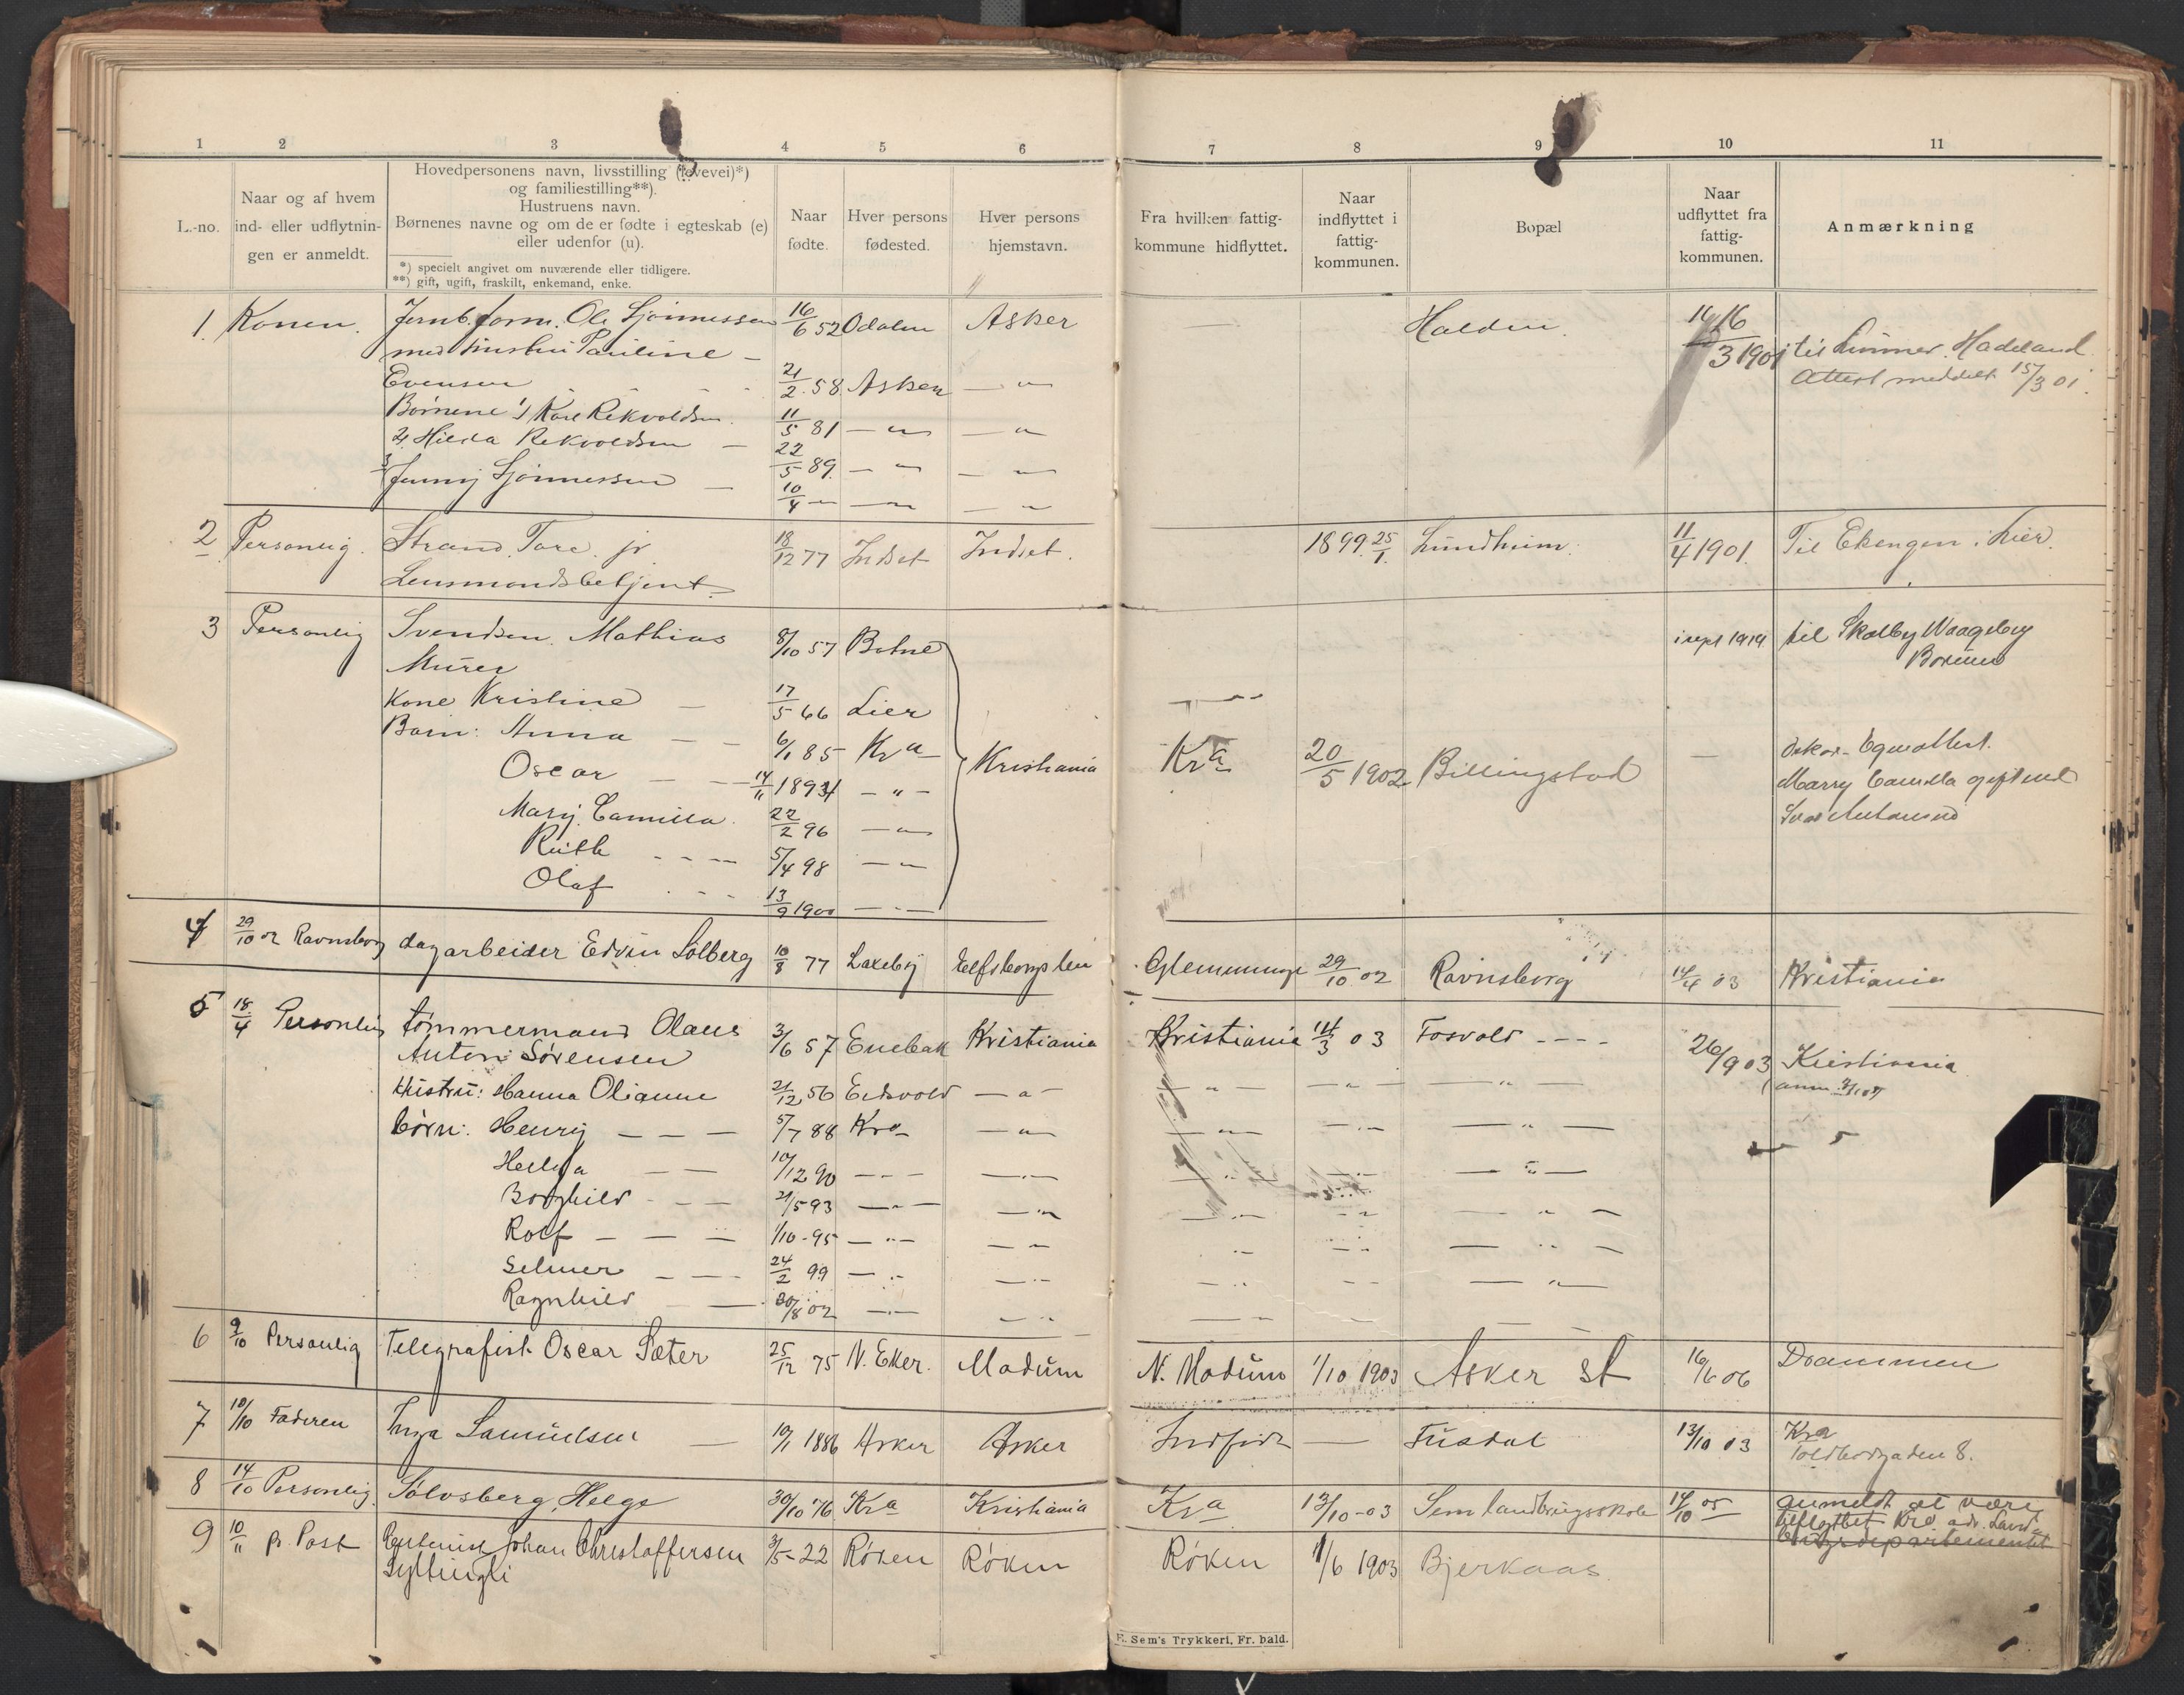 1 2 3 4 5 6 7 8 9 10 11
L.-no.
Naar og af hvem
ind- eller udflytnin-
gen er anmeldt.
Hovedpersonens navn, livsstilling (levevei)*)
og familiestilling**).
Hustruens navn.
Børnenes navne og om de er fødte i egteskab (e)
eller udenfor (u).
*) specielt angivet om nuværende eller tidligere.
**) gift, ugift, fraskilt, enkemand, enke.
Naar
fødte.
Hver persons
fødested.
Hver persons
hjemstavn.
Fra hvilken fattig-
kommune hidflyttet.
Naar
indflyttet i
fattig-
kommunen.
Bopæl
Naar
udflyttet fra
fattig-
kommunen.
Anmærkning
1. Konen. Jernb.form. Ole Gjönnessen 16/6 52 Odalen Asker — Halden. 16/3 1901 til Lunner. Hadeland
med hustru Pauline — Attest meddelt 15/3 01.
Evensen 21/2 58 Asker — " —
Børnene 1) Karl Rekvoldsen. 11/5 81 — " — — " —
2, Hilda Rekvoldsen — 22/5 89. — " — — " —
3 Jenny Gjönnessen — 10/4 — " — — " — — " —
2 Personlig. Strand, Tore. jr 18/12 77 Indset Indset. 1899 25/1. Lundheim. 11/4 1901. Til Ekengen i Lier.
Lensmandsbetjent
3 Personlig Svendsen, Mathias 8/10 57 Botne i sept 1919 til Skalby Waageby
Murer Borund
Kone Kristine — 17/5 66 Lier
Barn: Anna — — 6/1 85 Kra Kristiania Kra 20/5 1902 Billingstad —
Oscar — — 14/11 1894 — " —
Mary Camilla. 22/2 96 — " — Marry Camilla gift med
Ruth - - - - 5/4 98 — " —
Olaf . - - 13/9 1900 — " —
4 29/10 02 Ravnsborg dagarbeider Edvin Solberg 10/8 77 Laxeby Elfsborgs len Glemminge 29/10 02 Ravnsborg 14/4 03 Kristiania
5 18/4 Personlig tømmermand Olaus 3/6 57 Enebak Kristiania Kristiania 14/3 03 Fosvold - - - - 26/9 03 Kristiania
Anton Sørensen
Hustru: Hanna Olianne 21/12 56 Eidsvold — " — — " — — " — — " —
børn: Henry — — — 5/7 88 Kra — " — — " — — " — — " —
Helga — — 10/12 90 — " — — " — — " — — " — — " —
Borghild - — — 21/5 93 — " — — " — — " — — " — — " —
Rolf — — — 1/10 - 95 — " — — " — — " — — " — — " —
Selmer — — 24/2 99 — " — — " — — " — — " — — " —
Ragnhild — — 30/8 02 — " — — " —
6 9/10 Personlig Telegrafist Oscar Sæter 25/12 75 N. Eker. Modum N. Modum 1/10 1903 Asker st 16/6 06 Drammen
7 10/10 Faderen Inga Samuelsen — 10/1 1886 Asker Asker Indfødt — Fusdal 13/10 03 Kra
Toldbodgaden 8.
8 14/10 Personlig. Sølvsberg, Helge 30/10 76 Kra Kristiania Kra 13/10 - 03 Sem landbrugsskole 14/10 05 anmeldt at være
tilflyttet Kra adr. Land-
brugsdepartementet
9 10/11 pr. Post Johan Christoffersen 3/5 - 22 Røken Røken Røken 1/6 1903 Bjerkaas.
Gyltingli
E. Sem's Trykkeri, Fr. hald.